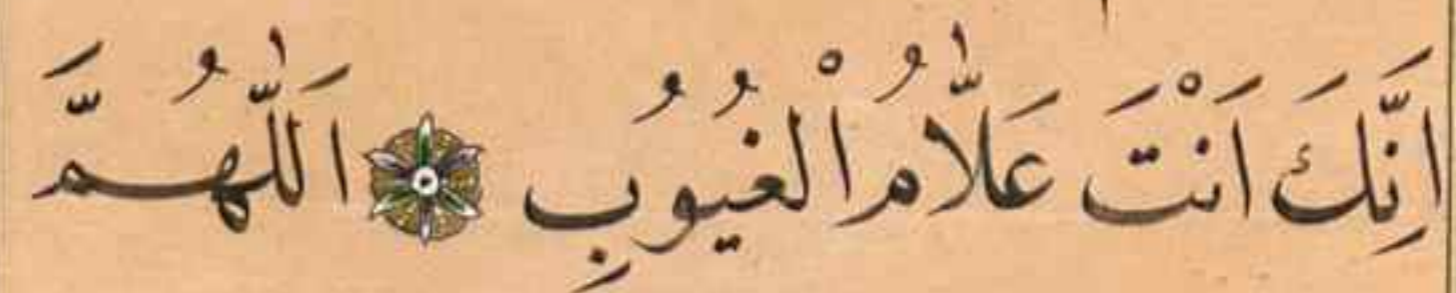 اَنَّكَ اَنْتَ عَلاَّمُ الْغُيُوبِ اَللّٰهُمَّ